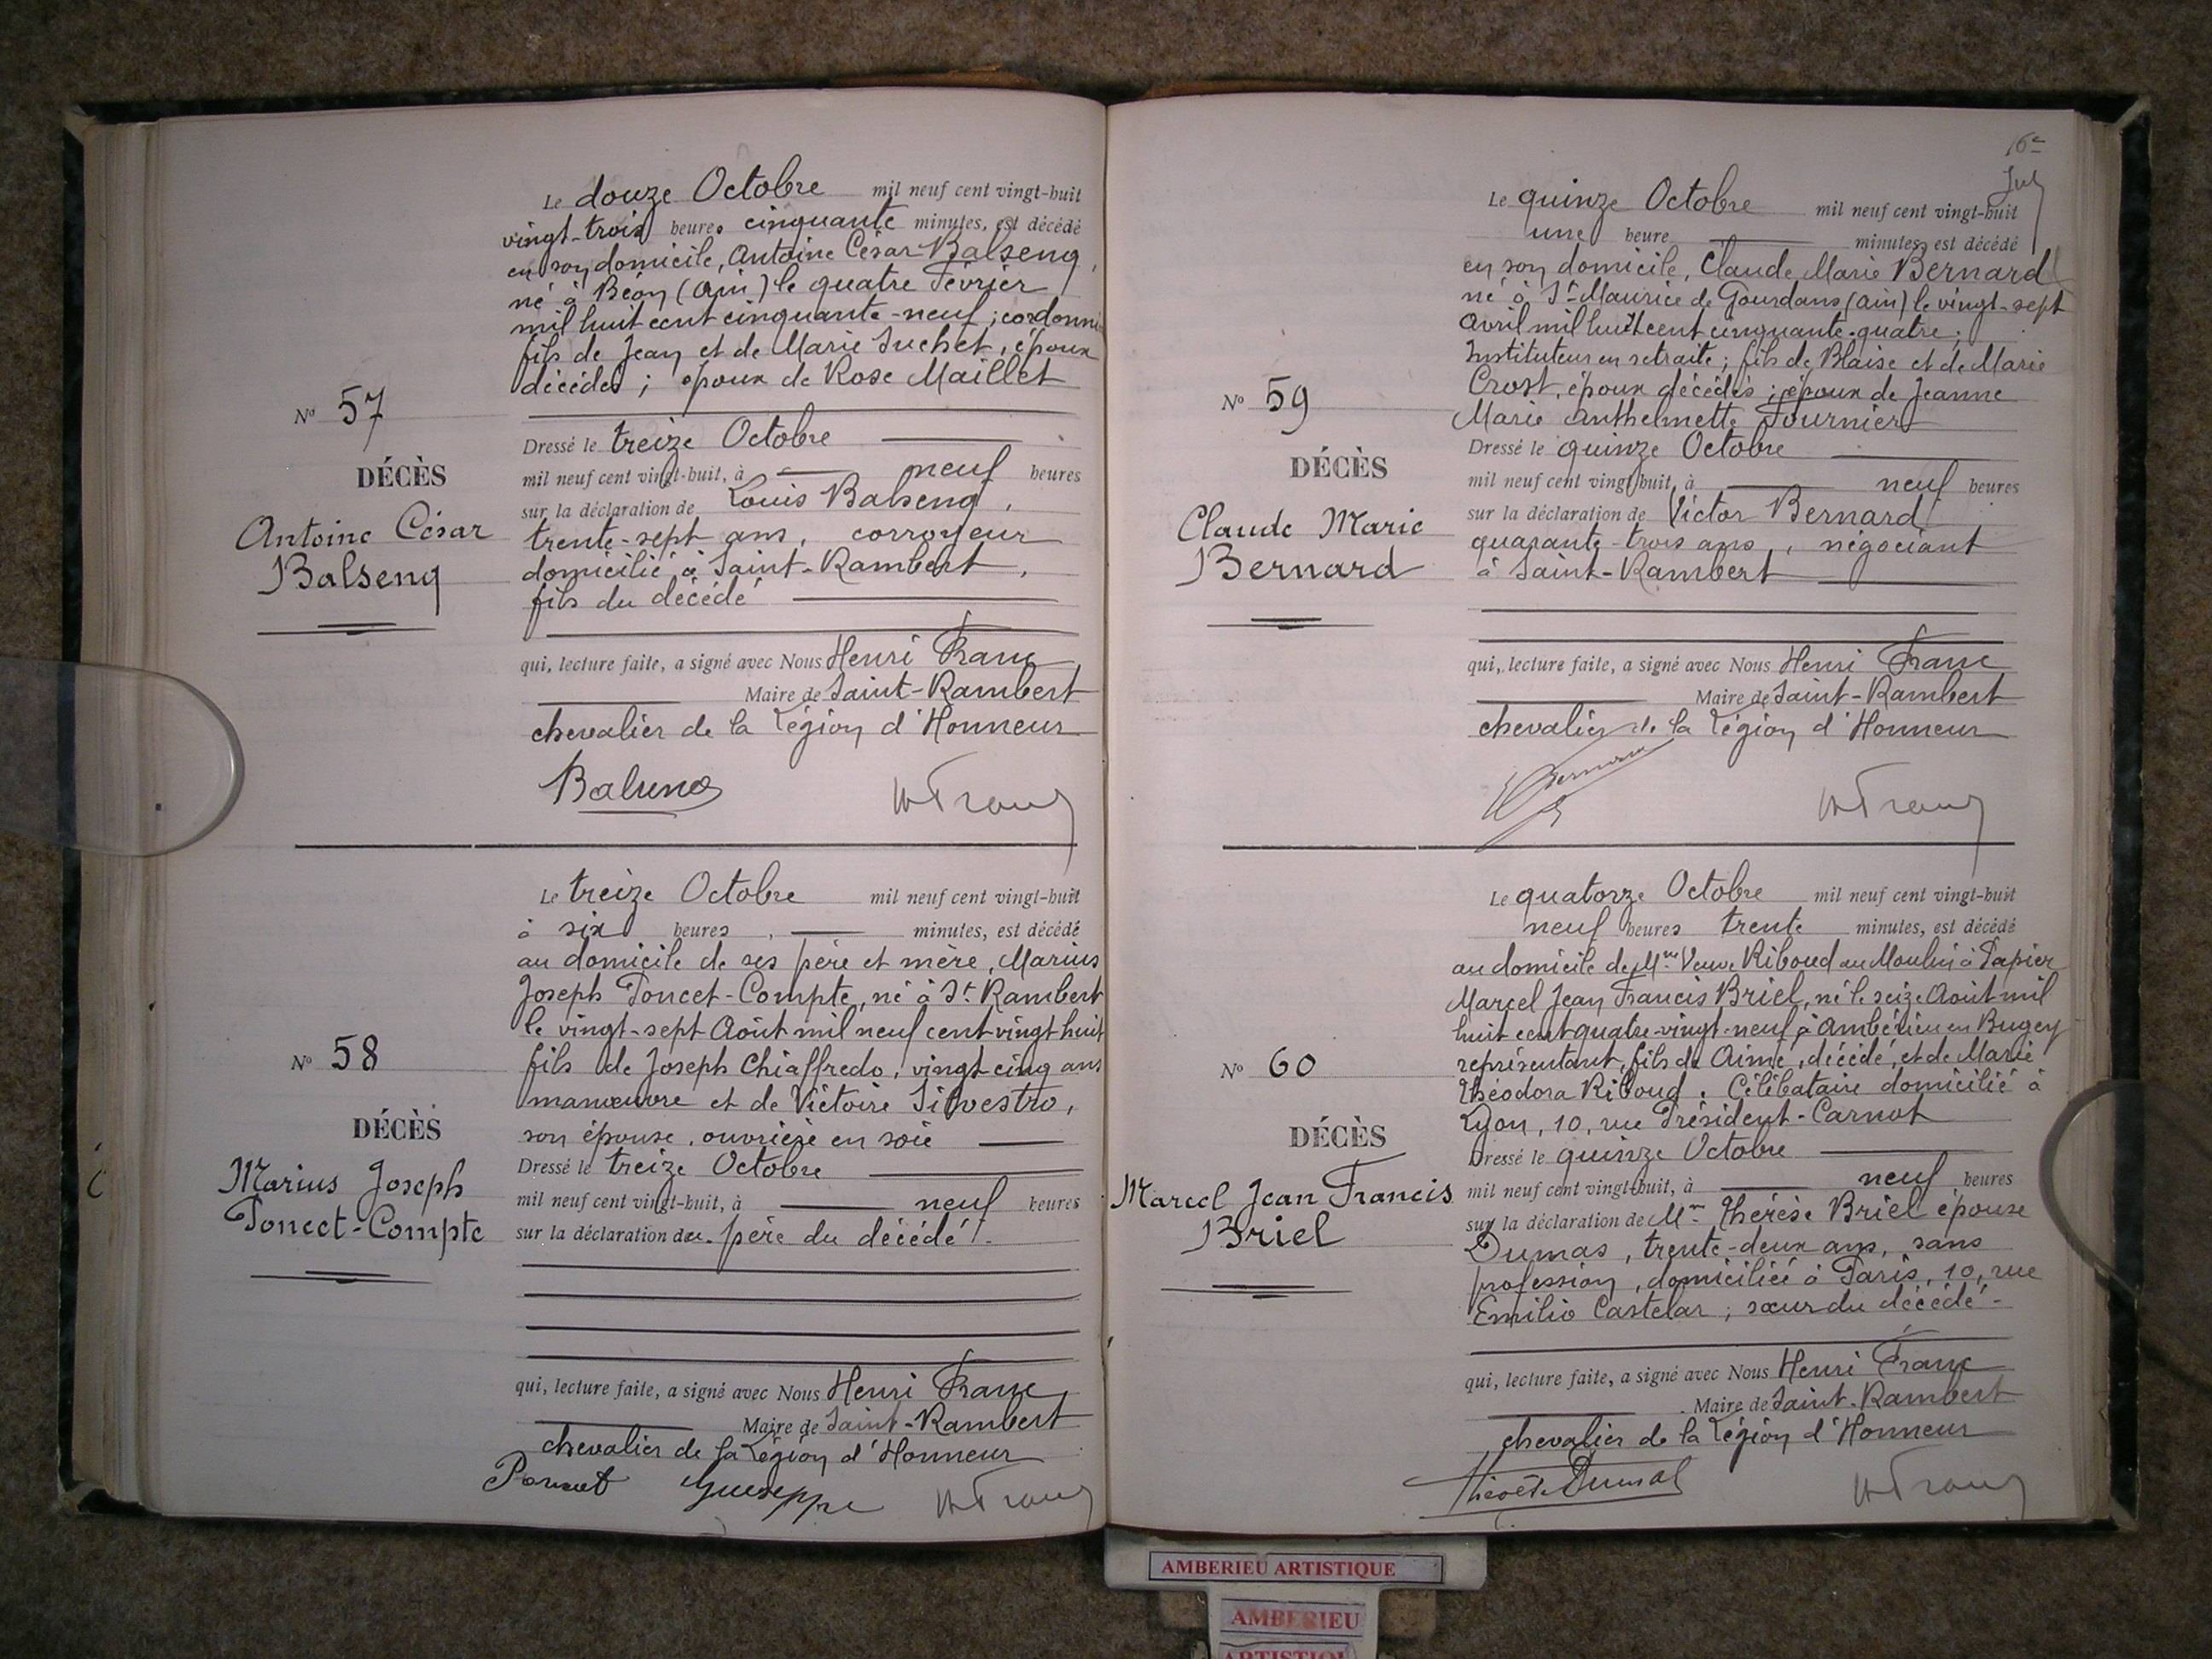 Le douze Octobre mil neuf cent vingt-huit
vingt-trois heures cinquante minutes, est décédé
en son domicile, Antoine César Balseng,
né à Béon (Ain) le quatre Février
mil huit cent cinquante-neuf ; cordonni
fils de Jean et de Marie Suchet, époux
décédés ; époux de Rose Maillet
N° 57
Dressé le treize Octobre
DÉCÈS
mil neuf cent vingt-huit, à neuf heures
Antoine César
Balseng
sur la déclaration de Louis Balseng,
trente-sept ans, corroyeur
domicilié à Saint-Rambert,
fils du décédé
qui, lecture faite, a signé avec Nous Henri Franc
Maire de Saint-Rambert
chevalier de la Légion d'Honneur
HFranc
Le treize Octobre mil neuf cent vingt-huit
à six heures, minutes, est décédé
au domicile de ses père et mère, Marius
Joseph Poncet-Compte, né à St Rambert
le vingt-sept Août mil neuf cent vingt huit
N° 58
fils de Joseph Chiaffredo, vingt-cinq ans
manœuvre et de Victoire Silvestro,
DÉCÈS
son épouse, ouvrière en soie
Marius Joseph
Poncet-Compte
Dressé le treize Octobre
mil neuf cent vingt-huit, à neuf heures
sur la déclaration du père du décédé.
qui, lecture faite, a signé avec Nous Henri Franc
Maire de Saint-Rambert
chevalier de la Légion d'Honneur
Poncet Guiseppe HFranc
16e
Le quinze Octobre mil neuf cent vingt-huit
une heure minutes, est décédé
en son domicile, Claude Marie Bernard
né à St Maurice de Gourdans (Ain) le vingt-sept
Avril mil huit cent cinquante-quatre ;
Instituteur en retraite ; fils de Blaise et de Marie
Crost, époux décédés ; époux de Jeanne
Marie Anthelmette Fournier
N° 59
Dressé le quinze Octobre
DÉCÈS
mil neuf cent vingt-huit, à neuf heures
Claude Marie
Bernard
sur la déclaration de Victor Bernard
quarante-trois ans, négociant
à Saint-Rambert
qui, lecture faite, a signé avec Nous Henri Franc
Maire de Saint-Rambert
chevalier de la Légion d'Honneur
Bernard HFranc
Le quatorze Octobre mil neuf cent vingt-huit
neuf heures trente minutes, est décédé
au domicile de Mme Veuve Riboud au Moulin à Papier
Marcel Jean Francis Briel, né le seize Août mil
huit cent quatre-vingt-neuf à Ambérieu en Bugey
N° 60
représentant, fils de Aimé, décédé, et de Marie
Théodora Riboud. Célibataire domicilié à
Lyon, 10, rue Président-Carnot
DÉCÈS
Dressé le quinze Octobre
Marcel Jean Francis
Briel
mil neuf cent vingt-huit, à neuf heures
sur la déclaration de Mme Thérèse Briel épouse
Dumas, trente-deux ans, sans
profession, domiciliée à Paris, 10, rue
Emilio Castelar ; sœur du décédé -
qui, lecture faite, a signé avec Nous Henri Franc
Maire de Saint-Rambert
chevalier de la Légion d'Honneur
Thérèse Dumas HFranc
AMBERIEU ARTISTIQUE
AMBERIEU
ARTISTIQUE